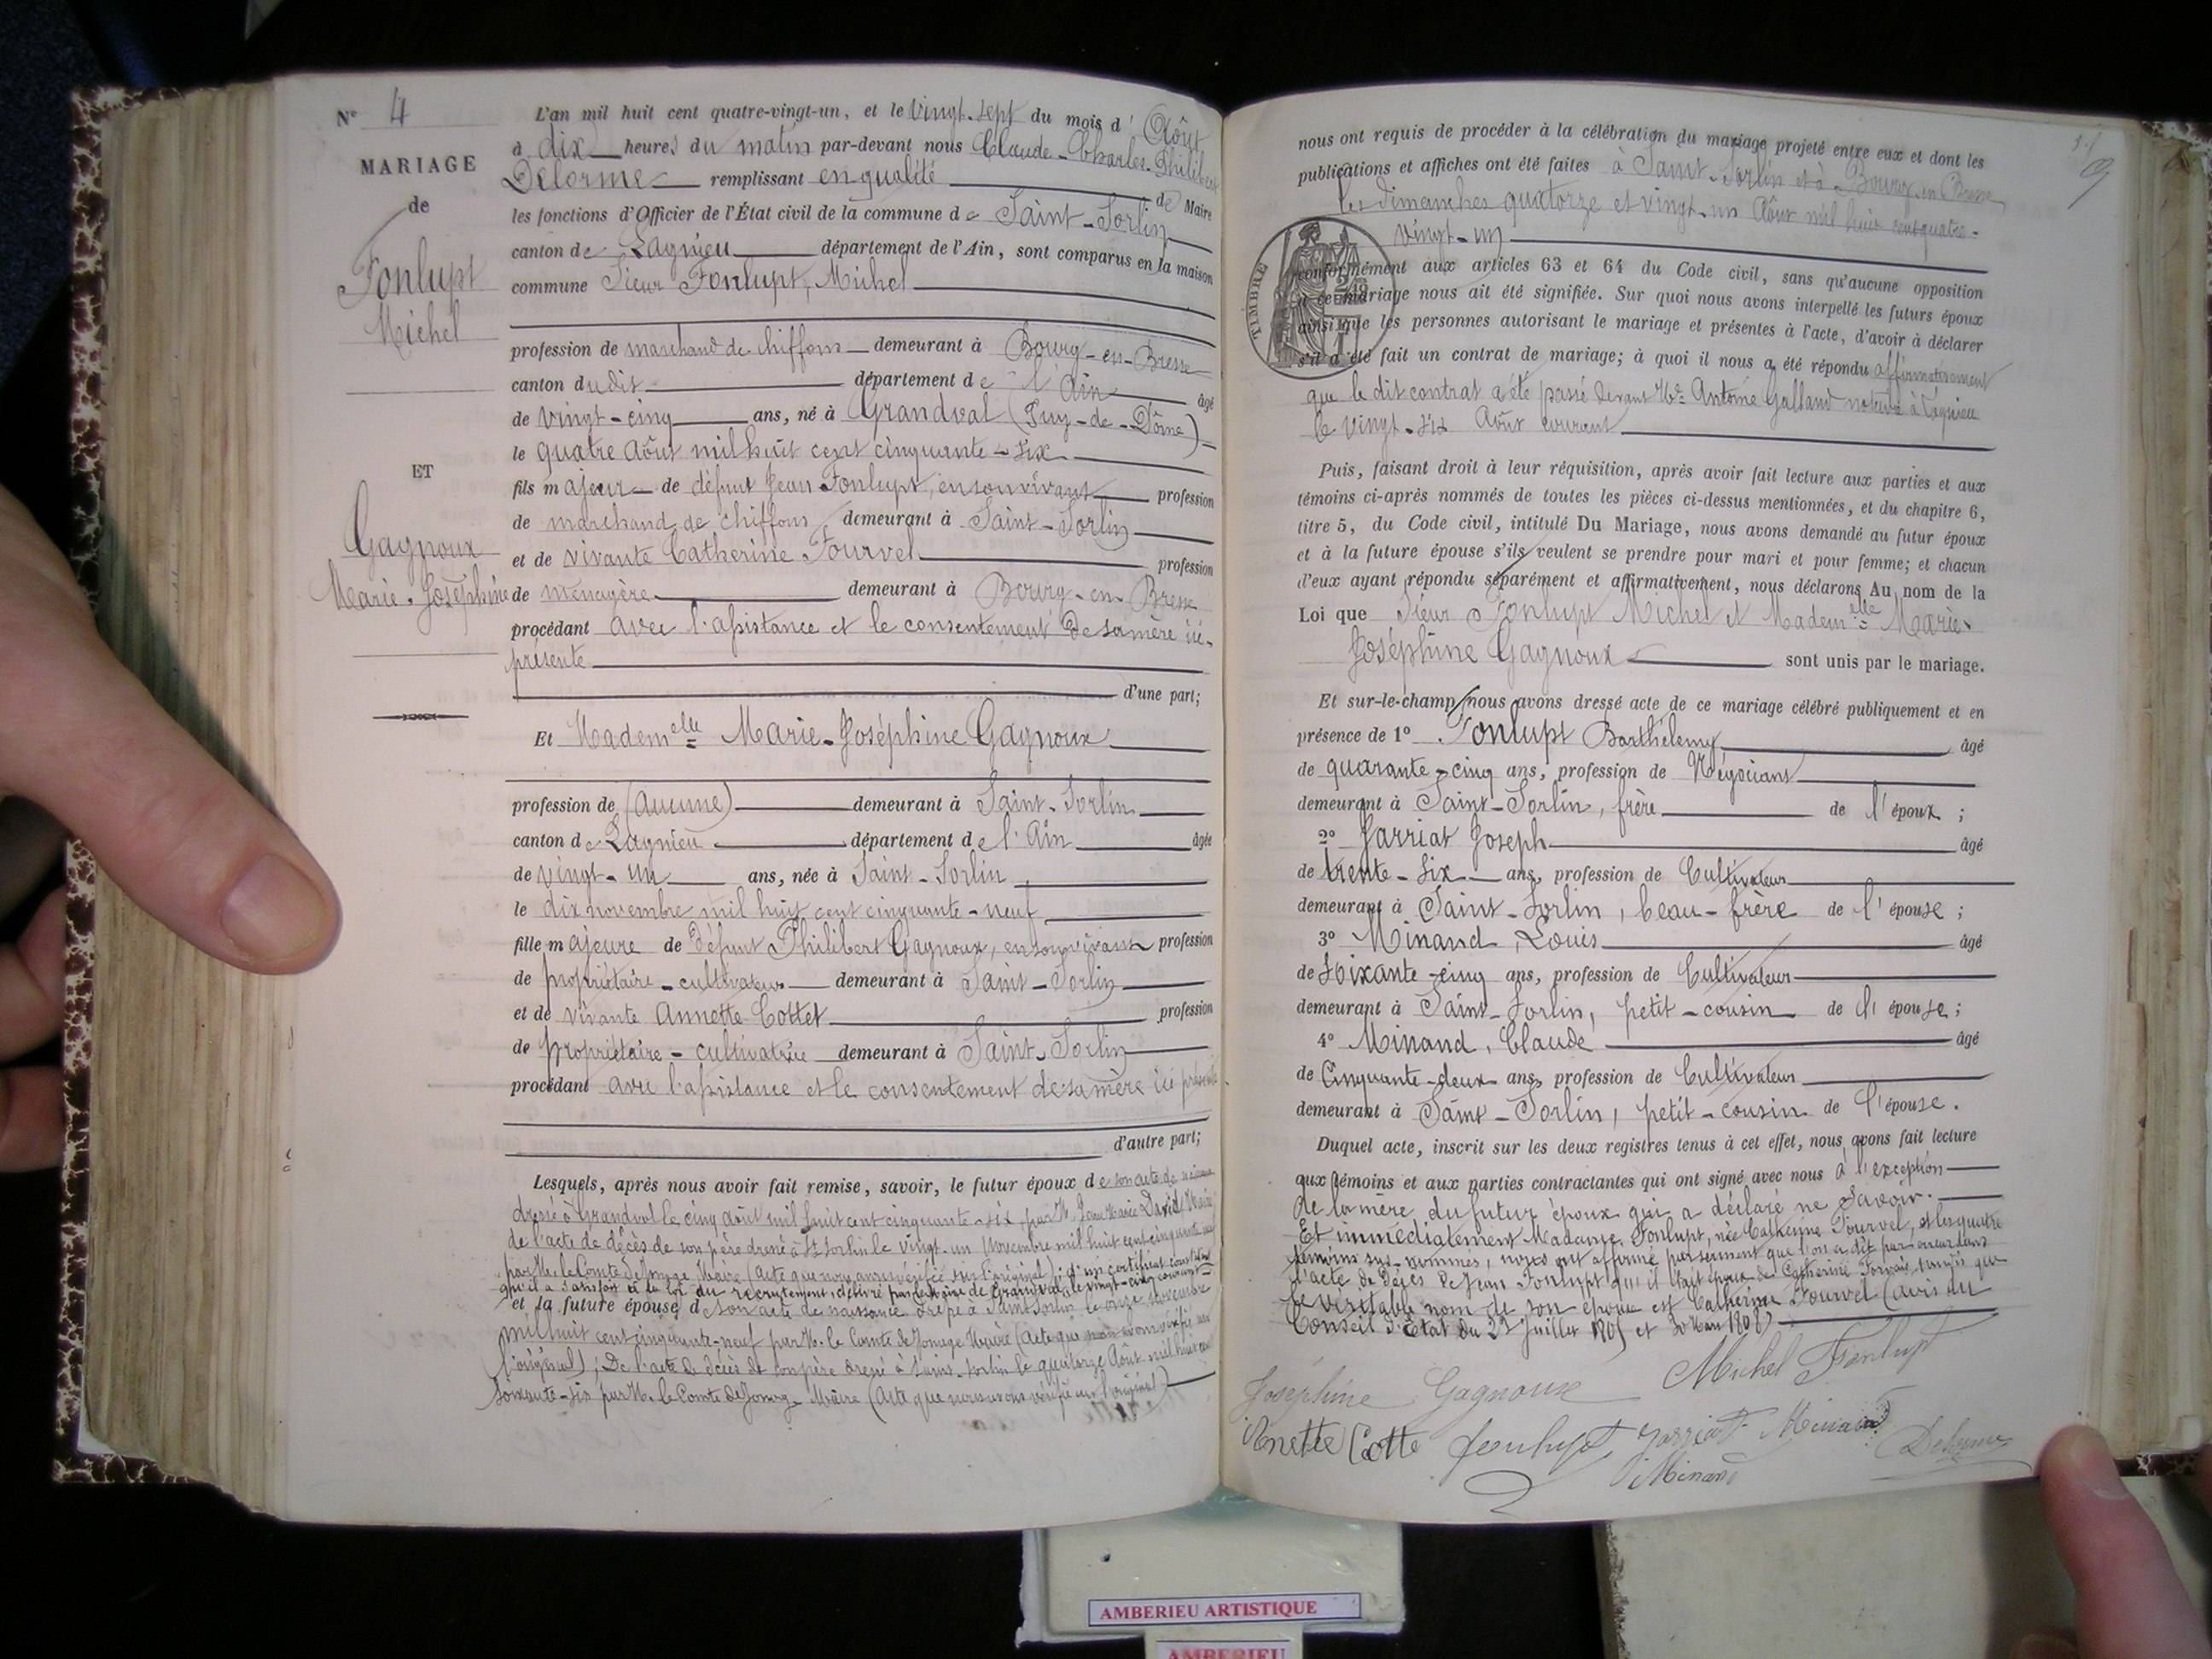 N° 4
MARIAGE
de
Fonlupt
Michel
ET
Gagnoux
Marie-Joséphine
L'an mil huit cent quatre-vingt-un, et le vingt-sept du mois d' Août
à dix heures du matin par-devant nous Claude-Charles-Philibert
Delorme remplissant en qualité de Maire
les fonctions d'Officier de l'État civil de la commune de Saint-Sorlin
canton de Lagnieu département de l'Ain, sont comparus en la maison
commune Sieur Fonlupt, Michel
profession de marchand de chiffons demeurant à Bourg-en-Bresse
canton dudit département de l'Ain âgé
de vingt-cinq ans, né à Grandval (Puy-de-Dôme)
le quatre Août mil huit cent cinquante-six
fils majeur de défunt Jean Fonlupt, en son vivant profession
de marchand de chiffons demeurant à Saint-Sorlin
et de vivante Catherine Fourvel profession
de ménagère demeurant à Bourg-en-Bresse
procédant avec l'assistance et le consentement de sa mère ici-
présente
d'une part;
Et Madem^elle Marie-Joséphine Gagnoux
profession de (aucune) demeurant à Saint-Sorlin
canton de Lagnieu département de l'Ain âgée
de vingt-un ans, née à Saint-Sorlin,
le dix novembre mil huit cent cinquante-neuf
fille majeure de défunt Philibert Gagnoux, en son vivant profession
de propriétaire-cultivateur demeurant à Saint-Sorlin
et de vivante Annette Cottet profession
de propriétaire-cultivatrice demeurant à Saint-Sorlin
procédant avec l'assistance et le consentement de sa mère ici présente
d'autre part;
Lesquels, après nous avoir fait remise, savoir, le futur époux de son acte de naissance
dressé à Grandval le cinq août mil huit cent cinquante-six, par M. Jean Marie David, Maire
de l'acte de décès de son père dressé à St Sorlin le vingt-un Novembre mil huit cent cinquante
par M. le Comte de Jonage Maire (acte que nous avons vérifié sur l'original); d'un certificat constatant
qu'il a satisfait à la loi du recrutement, délivré par le Maire de Grandval le vingt-cinq courant
et la future épouse, de son acte de naissance dressé à Saint Sorlin le onze novembre
mil huit cent cinquante-neuf par M. le Comte de Jonage Maire (acte que nous avons vérifié sur
l'original); De l'acte de décès de son père dressé à Saint-Sorlin le quatorze Août mil huit cent
soixante-six par M. le Comte de Jonage Maire (acte que nous avons vérifié sur l'original)
nous ont requis de procéder à la célébration du mariage projeté entre eux et dont les
publications et affiches ont été faites à Saint-Sorlin et à Bourg-en-Bresse
les dimanches quatorze et vingt-un Août mil huit cent quatre-
vingt-un
TIMBRE
conformément aux articles 63 et 64 du Code civil, sans qu'aucune opposition
à ce mariage nous ait été signifiée. Sur quoi nous avons interpellé les futurs époux
ainsi que les personnes autorisant le mariage et présentes à l'acte, d'avoir à déclarer
s'il a été fait un contrat de mariage; à quoi il nous a été répondu affirmativement
que le dit contrat a été passé devant M^e Antoine Galland notaire à Lagnieu
le vingt-six Août courant
Puis, faisant droit à leur réquisition, après avoir fait lecture aux parties et aux
témoins ci-après nommés de toutes les pièces ci-dessus mentionnées, et du chapitre 6,
titre 5, du Code civil, intitulé Du Mariage, nous avons demandé au futur époux
et à la future épouse s'ils veulent se prendre pour mari et pour femme; et chacun
d'eux ayant répondu séparément et affirmativement, nous déclarons Au nom de la
Loi que Sieur Fonlupt Michel et Madem^elle Marie-
Joséphine Gagnoux sont unis par le mariage.
Et sur-le-champ nous avons dressé acte de ce mariage célébré publiquement et en
présence de 1° Fonlupt Barthélemy âgé
de quarante-cinq ans, profession de Négociant
demeurant à Saint-Sorlin, frère de l'époux;
2° Jarriat Joseph âgé
de trente-six ans, profession de Cultivateur
demeurant à Saint-Sorlin, beau-frère de l'épouse;
3° Minand, Louis âgé
de Soixante-cinq ans, profession de Cultivateur
demeurant à Saint-Sorlin, petit-cousin de l'épouse;
4° Minand, Claude âgé
de Cinquante-deux ans, profession de Cultivateur
demeurant à Saint-Sorlin, petit-cousin de l'épouse.
Duquel acte, inscrit sur les deux registres tenus à cet effet, nous avons fait lecture
aux témoins et aux parties contractantes qui ont signé avec nous à l'exception
de la mère du futur époux qui a déclaré ne savoir.
Et immédiatement Madame Fonlupt, née Catherine Fourvel, et les quatre
témoins sus-nommés, nous ont affirmé par serment que l'on a dit par erreur dans
l'acte de décès de Jean Fonlupt qu'il était époux de Catherine tandis que
le véritable nom de son épouse est Catherine Fourvel (avis du
Conseil d'Etat du 23 Juillet 1805 et 30 Mars 1808)
Joséphine Gagnoux Michel Fonlupt
Anette Cotte fonlupt Jarriat Minand Delorme
Minand
AMBERIEU ARTISTIQUE
AMBERIEU